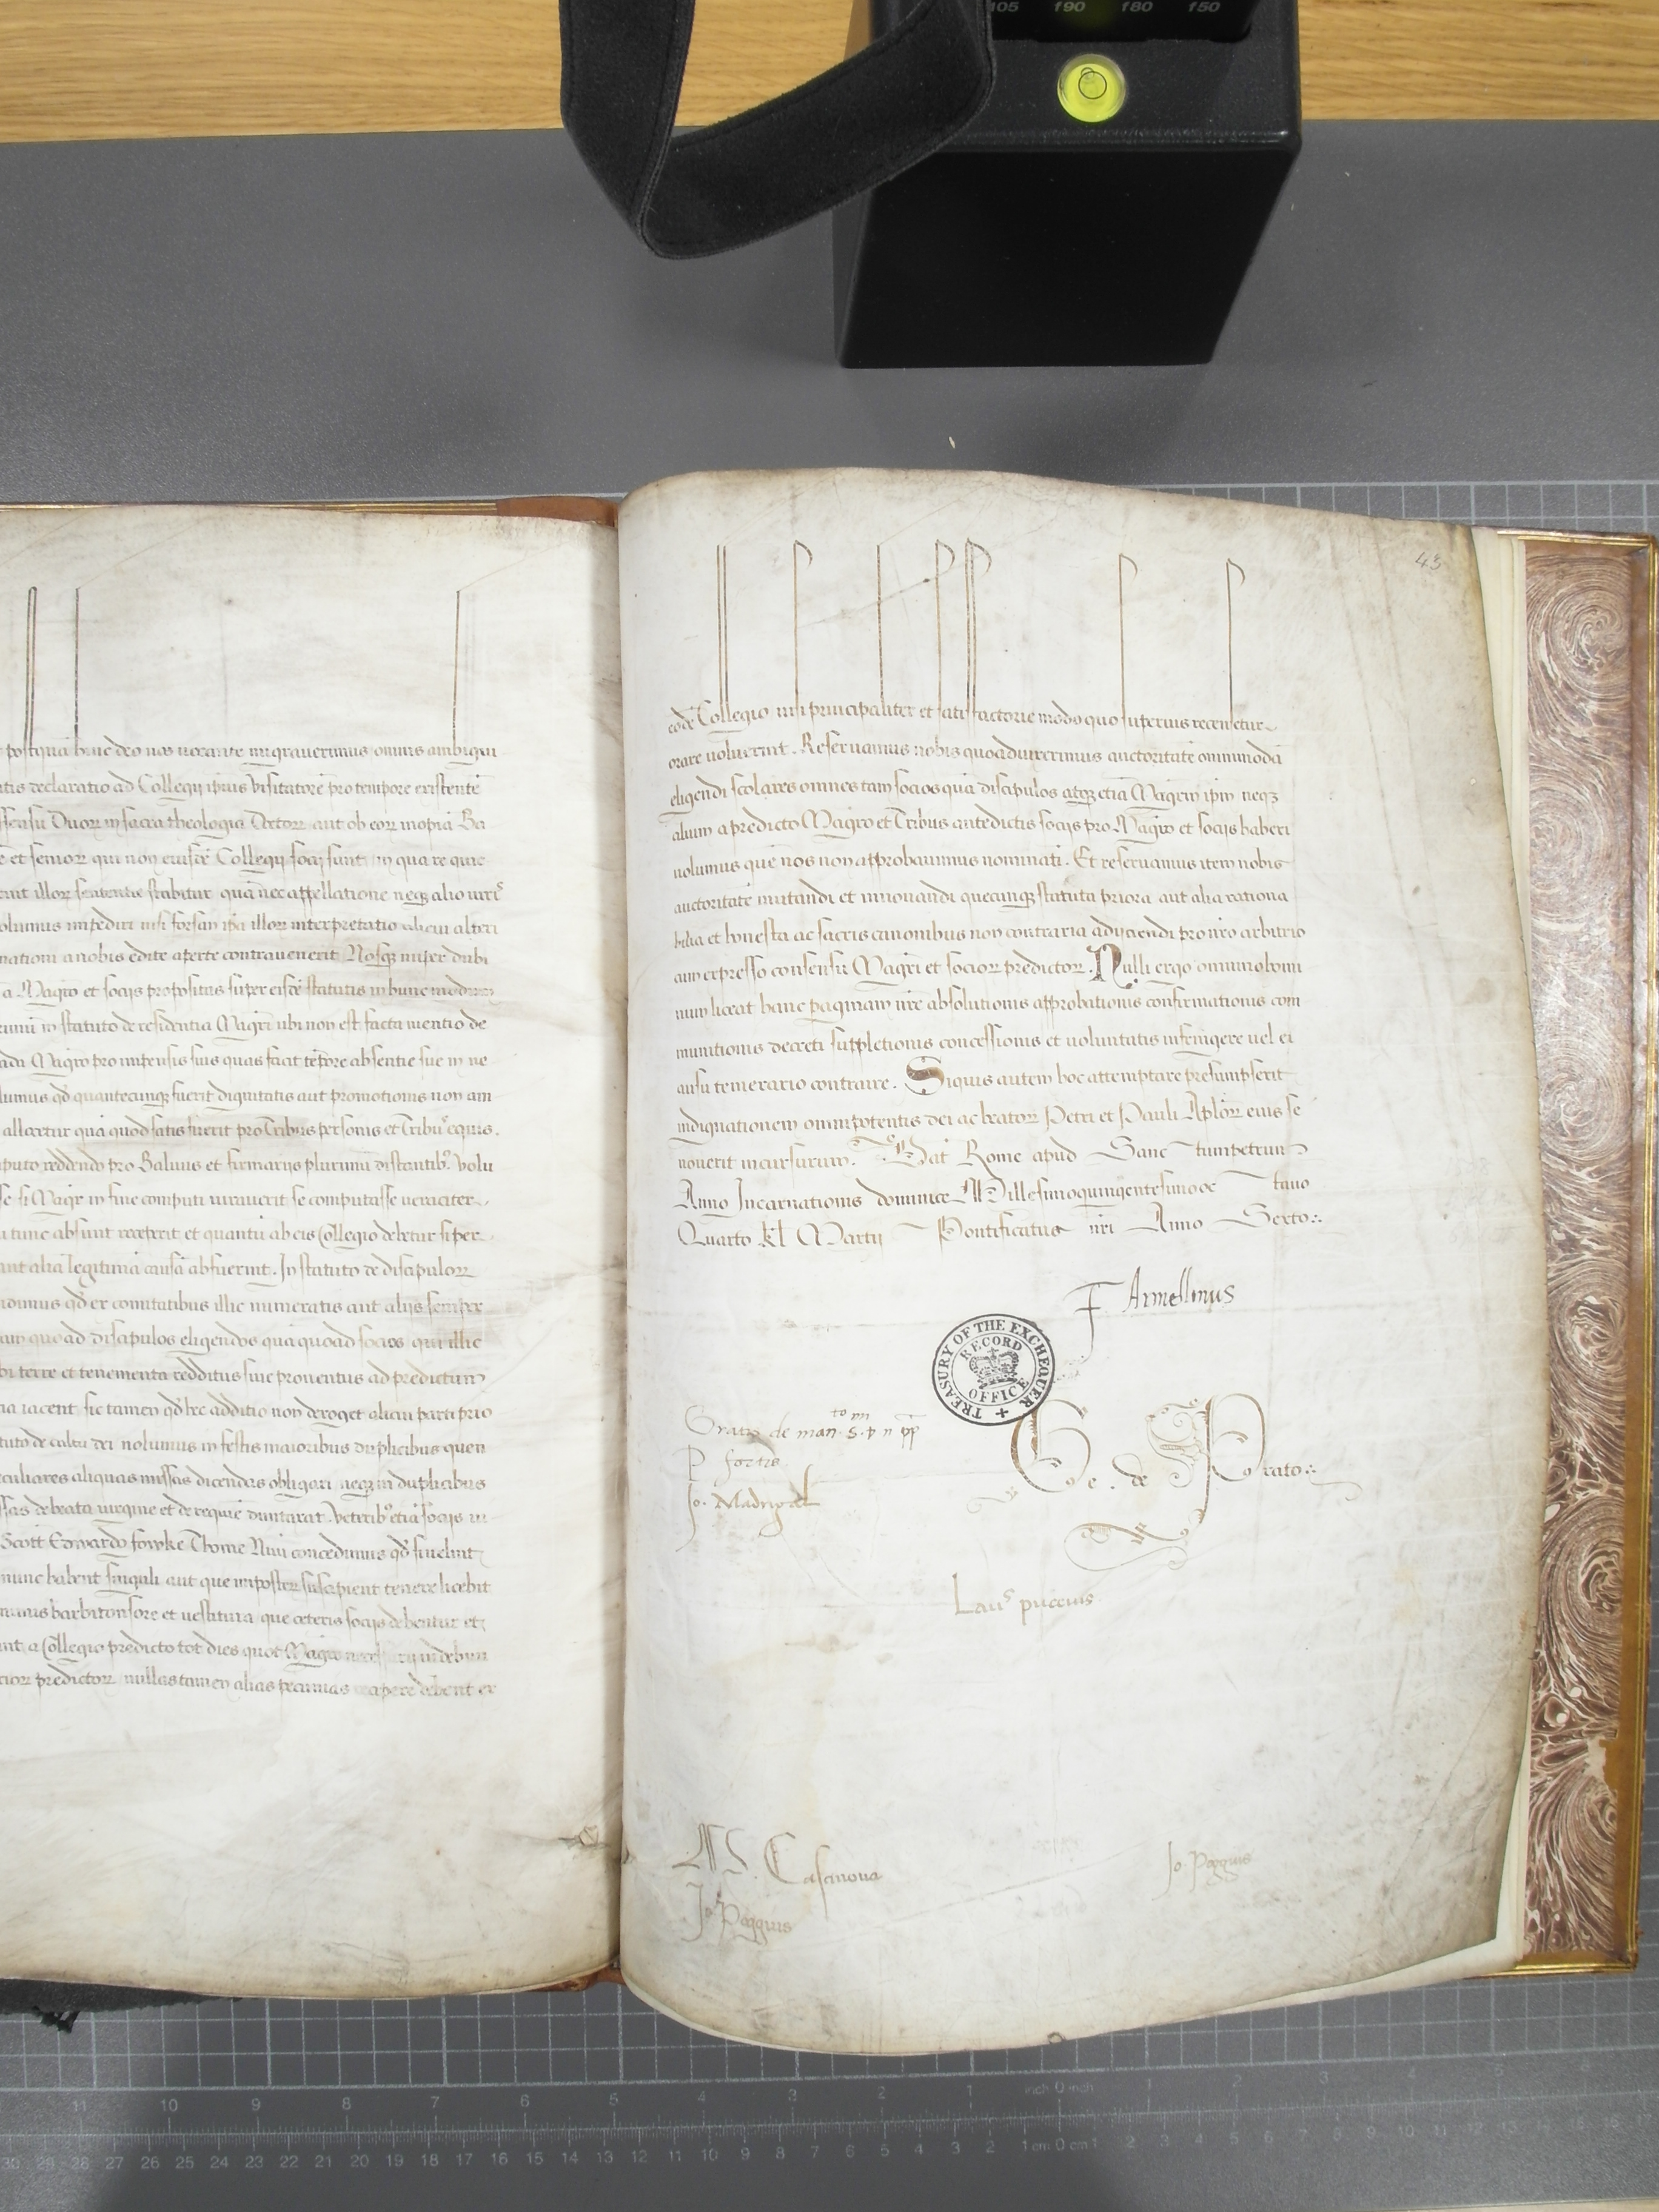 105 f90 f80 f50
43
postquā huic deo nos uocante migrauerimus omnis ambigui
tis declaratio ad Collegij ipsius Visitatorē pro tempore existentē
ssensu Duorum in sacra theologia Doctorum aut ob eorum inopiā Ba
e et seniorum qui non eiusdē Collegij socij sunt in qua re que
rit illorum sententie stabitur quā nec appellatione neqz alio iuris
olumus impediri nisi forsan ista illorum interpretatio alicui alteri
nationi a nobis edite aperte contrauenerit Nosqz nuper dubi
a Magro et socijs propositas super eisdē statutis in hunc modum
in statuto de residentia Magri ubi non est facta mentio de
Magro pro impensis suis quas faciat tēpore absentie sue in ne
lumus qd quantecumqz fuerit dignitatis aut promotionis non am
allocetur quā quod satis fuerit pro Tribus personis et Tribus equis.
puto reddendo pro Baliuis et firmarijs plurimū distantibus. Volu
se si Magr in fine computi iurauerit se computasse ueraciter
tunc absunt receperit et quantū ab eis Collegio debetur si per
aut aliā legitimā causā abfuerint. In statuto de discipulorum
qd ex comitatibus illic numeratis aut alijs semper
quoad discipulos eligendos quā quoad socios qui illic
bi terre et tenementa redditus siue prouentus ad predictum
ia iacent sic tamen qd hec additio non deroget alicui parti prio
tuto de cultu dei nolumus in festis maioribus duplicibus quen
culiares aliquas missas dicendas obligari neqz in duplicibus
ssas de beata uirgine et de requiē dumtaxat. Veterib9 etiā socijs
Scott Edwardo fowke Thome Nuu concedimus qd si uelint
nunc habent singuli aut que imposterum suscipient tenere licebit
barbitonsore et uestitura que ceteris socijs debentur et
a Collegio predicto tot dies quot Magro
predictorum nullas tamen alias pecunias recipere debent ex
eodē Collegio nisi principaliter et satisfactorie modo quo superius recensetur
orare uoluerint. Reseruamus nobis quoad uixerimus auctoritatē omnimodā
eligendi scolares omnes tam socios quā discipulos atqz etiā Magrm ipm neqz
alium a predicto Magro et Tribus antedictis socijs pro Magro et socijs haberi
uolumus quē nos non approbauimus nominati. Et reseruamus item nobis
auctoritatē mutandi et innouandi quecunqz statuta priora aut alia rationa
bilia et honesta ac sacris canonibus non contraria adijciendi pro nro arbitrio
cum expresso consensu Magri et sociorum predictorum. Nulli ergo omnino homi
num liceat hanc paginam nre absolutionis approbationis confirmationis com
munitionis decreti suppletionis concessionis et uoluntatis infringere uel ei
ausu temerario contraire. Siquis autem hoc attemptare presumpserit
indignationem omnipotentis dei ac beatorum Petri et Pauli Aplorum eius se
nouerit incursurum. Dat Rome apud Sanc tumpetrum
Anno Incarnationis dominice Millesimoquingentesimooc tauo
Quarto kl Martij Pontificatus nri Anno Sexto
F Armellinus
TREASURY OF THE EXCHEQUER
RECORD
OFFICE
Gratis de man to s. d n pp
P fortis
Jo. Madrigal
Ge. de Prato
Laus puccius
A de Casanoua
Jo. Poggius
Jo Poggius
11 10 9 8 7 6 5 4 3 2 1 inch 0 inch 1 2 3 4
30 29 28 27 26 25 24 23 22 21 20 19 18 17 16 15 14 13 12 11 10 9 8 7 6 5 4 3 2 1 cm 0 cm 1 2 3 4 5 6 7 8 9 10 11 12 13